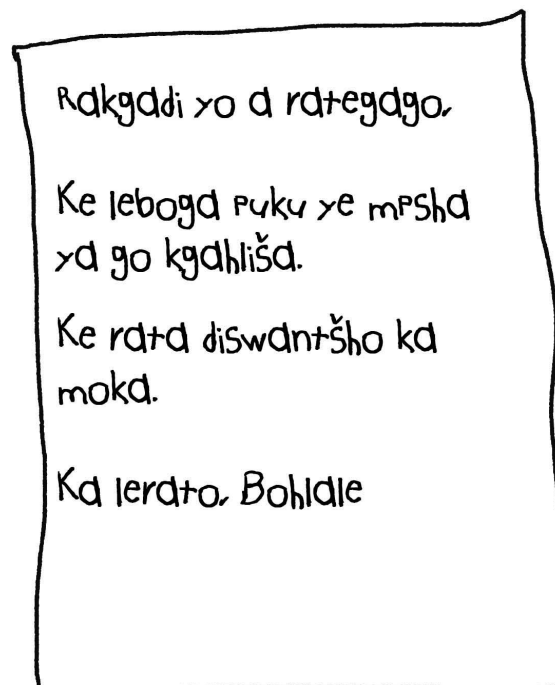 Rakgadi yo a rategago,
Ke leboga puku ye mpsha
ya go kgahliša.
Ke rata diswantšho ka
moka.
Ka lerato, Bohlale